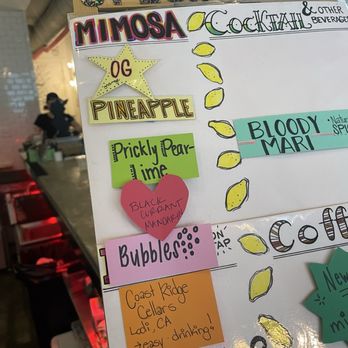 MIMOSA
OG
PINEAPPLE
Prickly Pear-
Lime
BLACK
CURRANT
MANDARIN
Bubbles
Coast Ridge
Cellars
Lodi, CA
*easy drinking!
COCKTAIL & OTHER
BEVERAGES
BLOODY
MARI
ON
TAP
Coff
New
mi